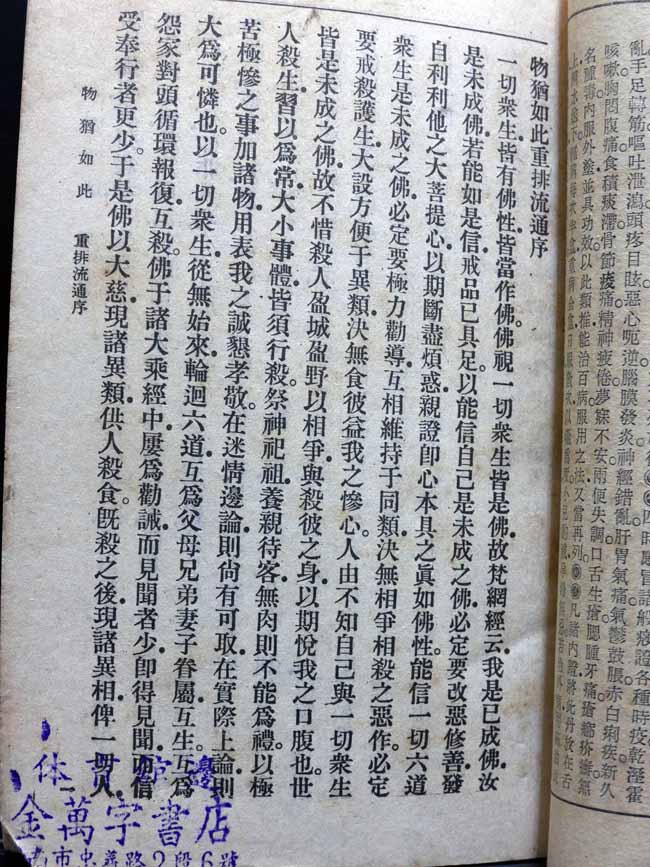 亂手足轉筋嘔吐泄瀉頭疼目眩惡心呃逆腦膜發炎神經錯亂肝胃氣痛氣鬱鼓脹赤白痢疾新久
咳嗽胸悶腹痛食積痰滯骨節痠痛精神疲倦夢寐不安兩便失調口舌生瘡腮腫牙痛
名腫毒內服外塗並具功效以此類推能治百病服用之法又當再列凡諸內證將此丹放在舌
物猶如此重排流通序
一切衆生皆有佛性。皆當作佛。佛視一切衆生皆是佛。故梵網經云。我是已成佛。汝
是未成佛。若能如是信。戒品已具足。以能信自己是未成之佛。必定要改惡修善。發
自利利他之大菩提心。以期斷盡煩惑。親證卽心本具之眞如佛性。能信一切六道
衆生是未成之佛。必定要極力勸導。互相維持。于同類決無相爭相殺之惡作。必定
要戒殺護生。大設方便。于異類決無食彼益我之慘心。人由不知自己與一切衆生
皆是未成之佛。故不惜殺人盈城盈野以相爭。與殺彼之身。以期悅我之口腹也。世
人殺生。習以爲常。大小事體。皆須行殺。祭神祀祖。養親待客。無肉則不能爲禮。以極
苦極慘之事加諸物。用表我之誠懇孝敬。在迷情邊論。則尙有可取。在實際上論。則
大爲可憐也。以一切衆生。從無始來。輪迴六道。互爲父母兄弟妻子眷屬互生。互爲
怨家對頭循環報復互殺。佛于諸大乘經中。屢爲勸誡。而見聞者少。卽得見聞。而信
受奉行者更少。于是佛以大慈。現諸異類。供人殺食。旣殺之後。現諸異相。俾一切人
物猶如此　重排流通序
金萬字書店
市忠義路2段6號